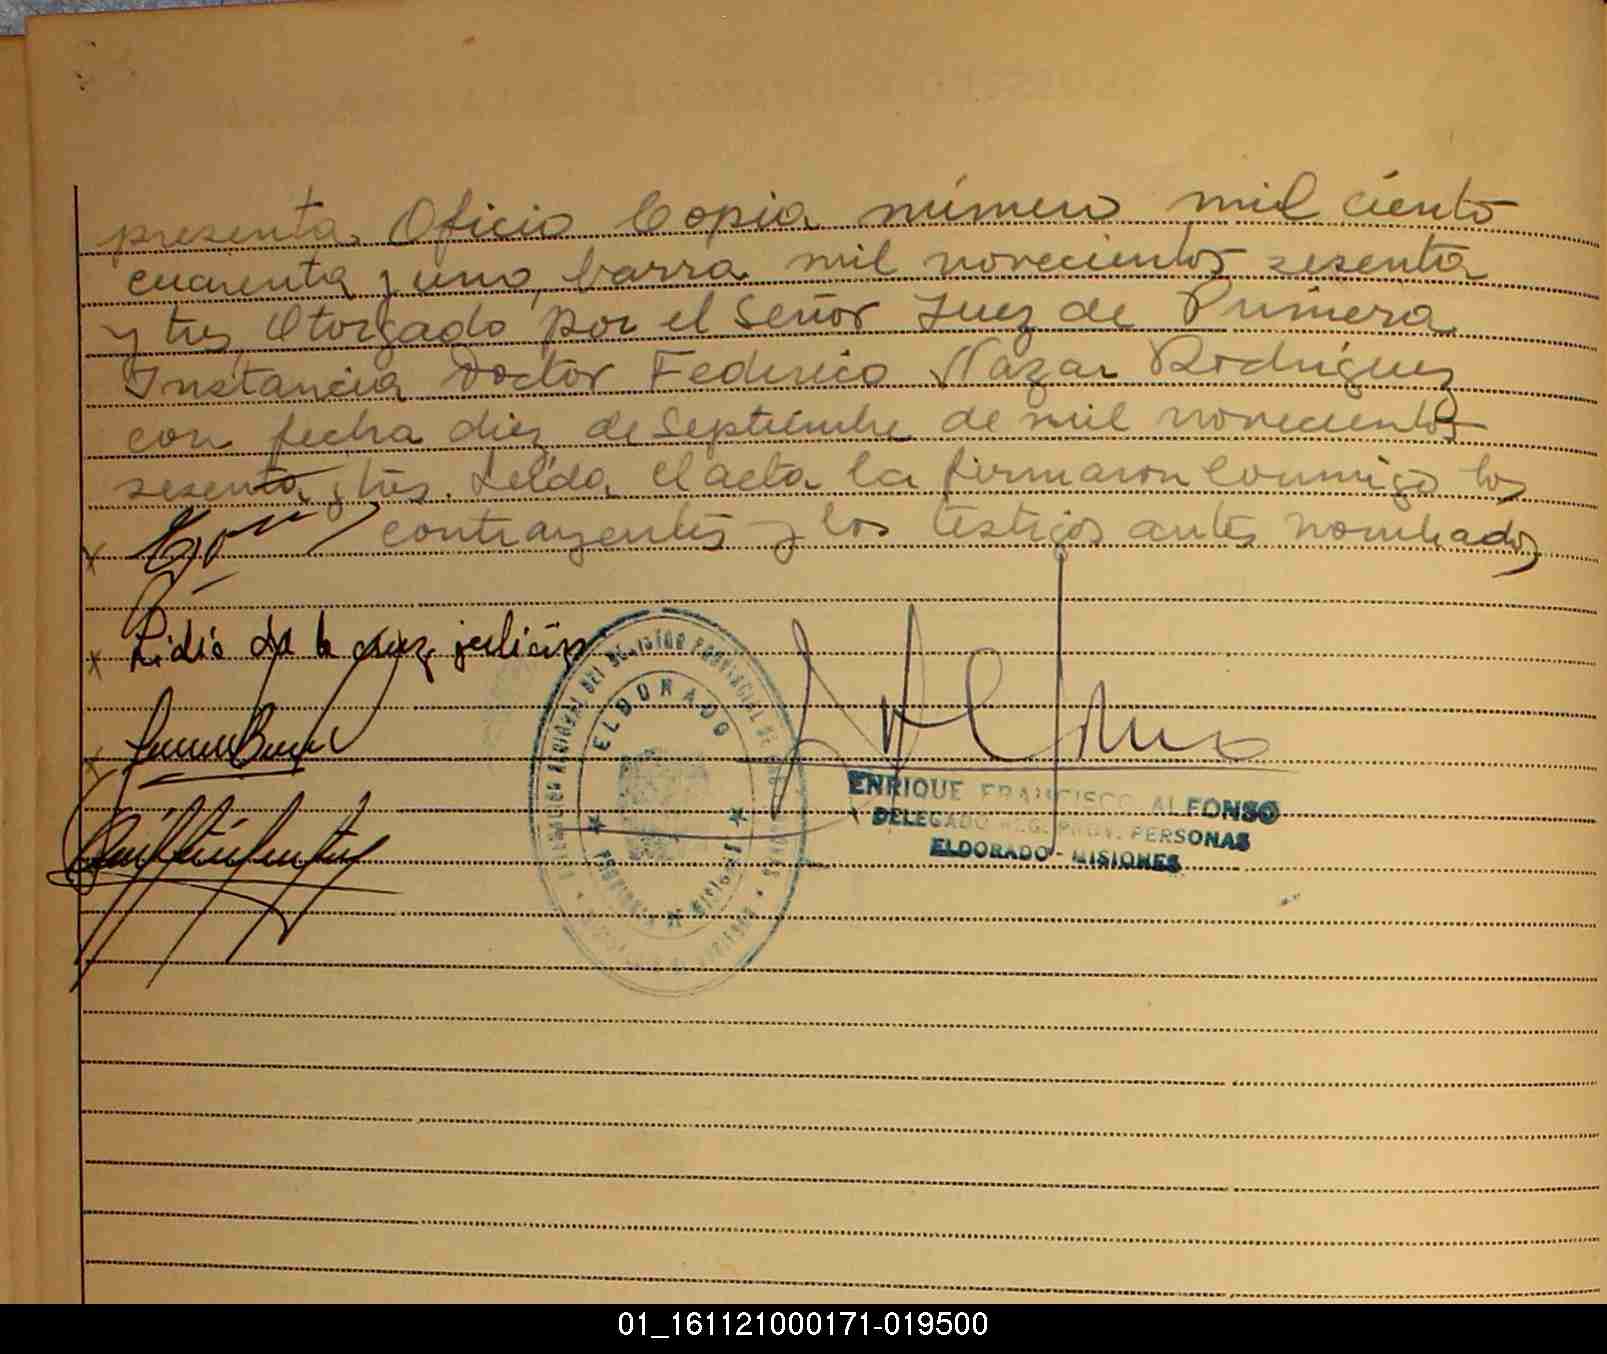 presenta Oficio Copia número mil ciento
cuarenta y uno, barra mil novecientos sesenta
y tres, Otorgado por el Señor Juez de Primera
Instancia Doctor Federico Nazar Rodriguez
con fecha diez de Septiembre de mil novecientos
sesenta y tres. Leída el acta la firmaron Conmigo los
contrayentes y los testigos antes nombrados
Lidia de la cruz
ELDORADO
ENRIQUE FRANCISCO ALFONSO
DELEGADO REG. PROV. PERSONAS
ELDORADO - MISIONES
01_161121000171-019500